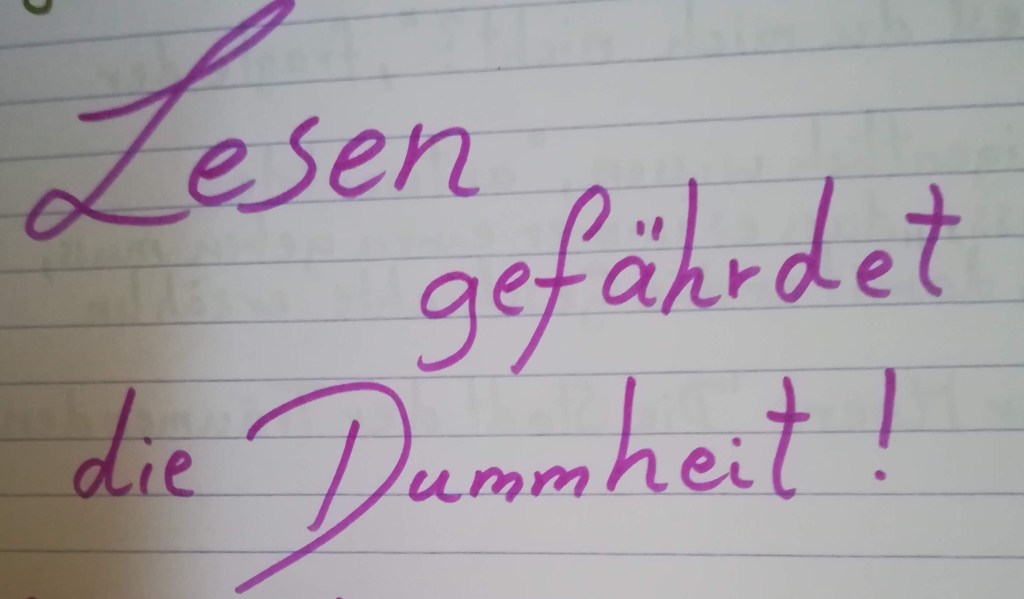 Lesen
gefährdet
die Dummheit !